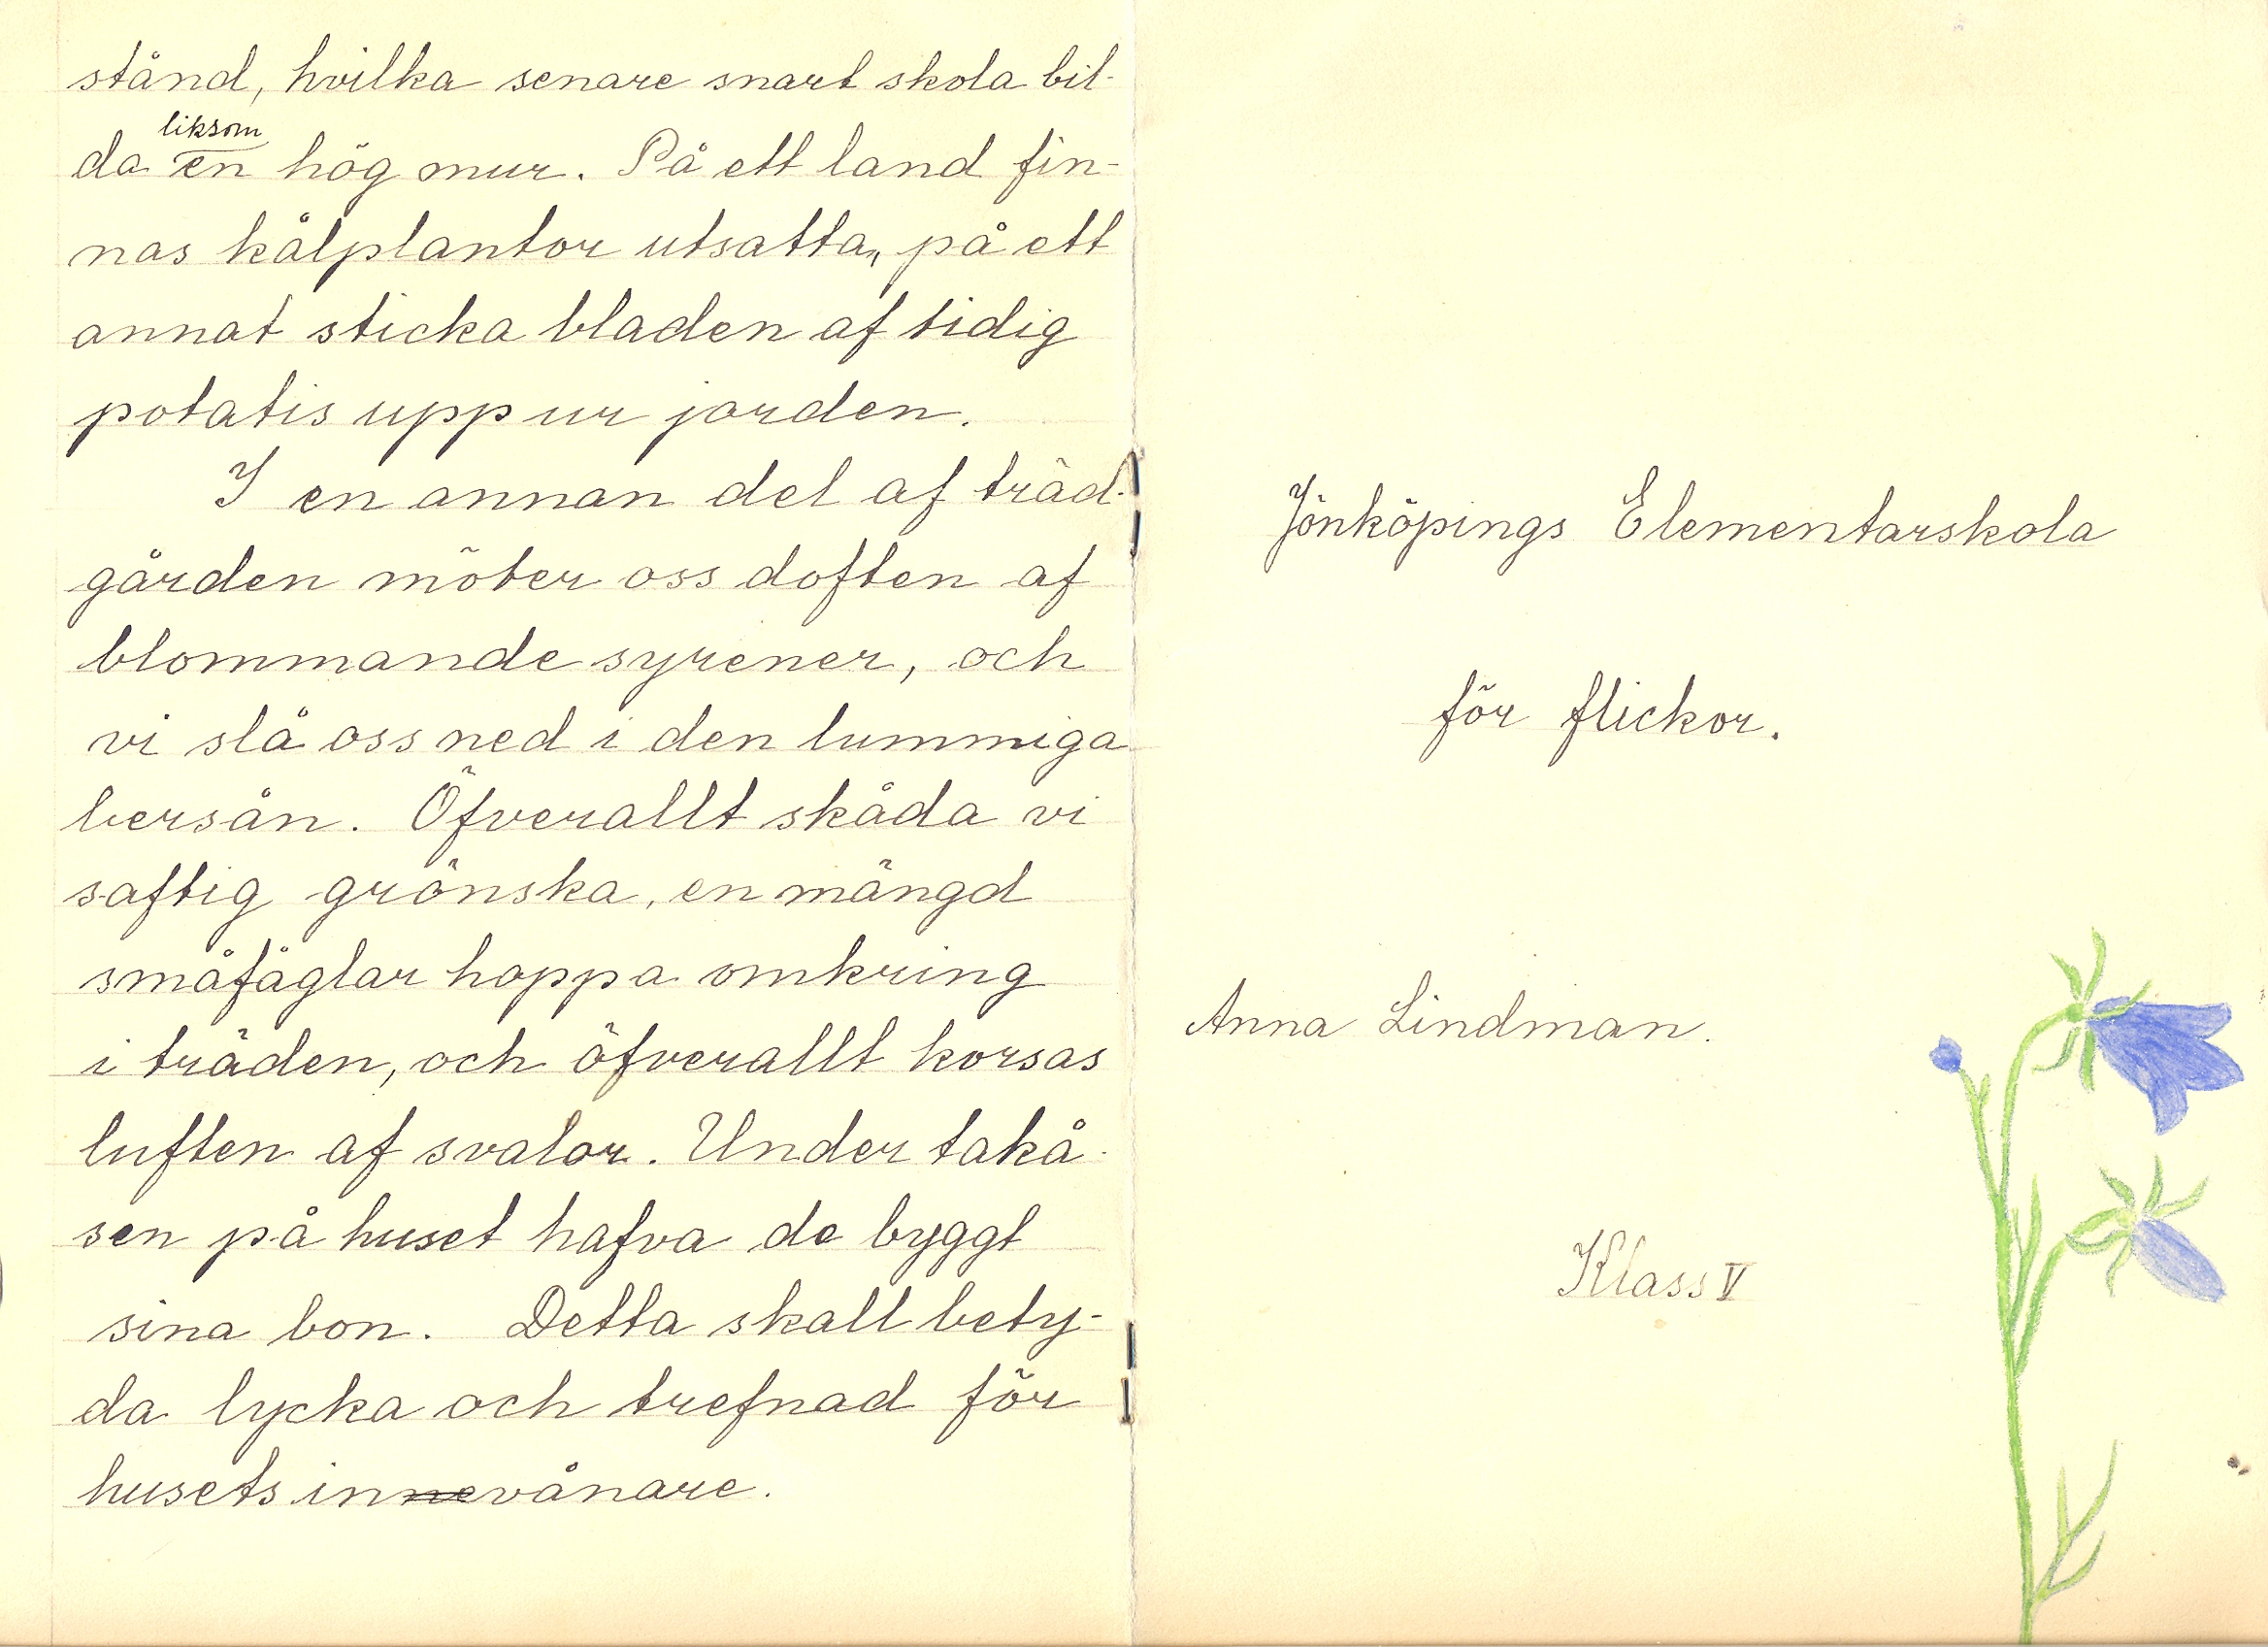 stånd, hvilka senare snart skola bil-
liksom
da en hög mur. På ett land fin-
nas kålplantor utsatta, på ett
annat sticka bladen af tidig
potatis upp ur jorden.
I en annan del af träd-
gården möter oss doften af
blommande syrener, och
vi slå oss ned i den lummiga
bersån. Öfverallt skåda vi
saftig grönska, en mängd
småfåglar hoppa omkring
i träden, och öfverallt korsas
luften af svalor. Under takå-
sen på huset hafva de byggt
sina bon. Detta skall bety-
da lycka och trefnad för
husets innevånare.
Jönköpings Elementarskola
för flickor.
Anna Lindman.
Klass V